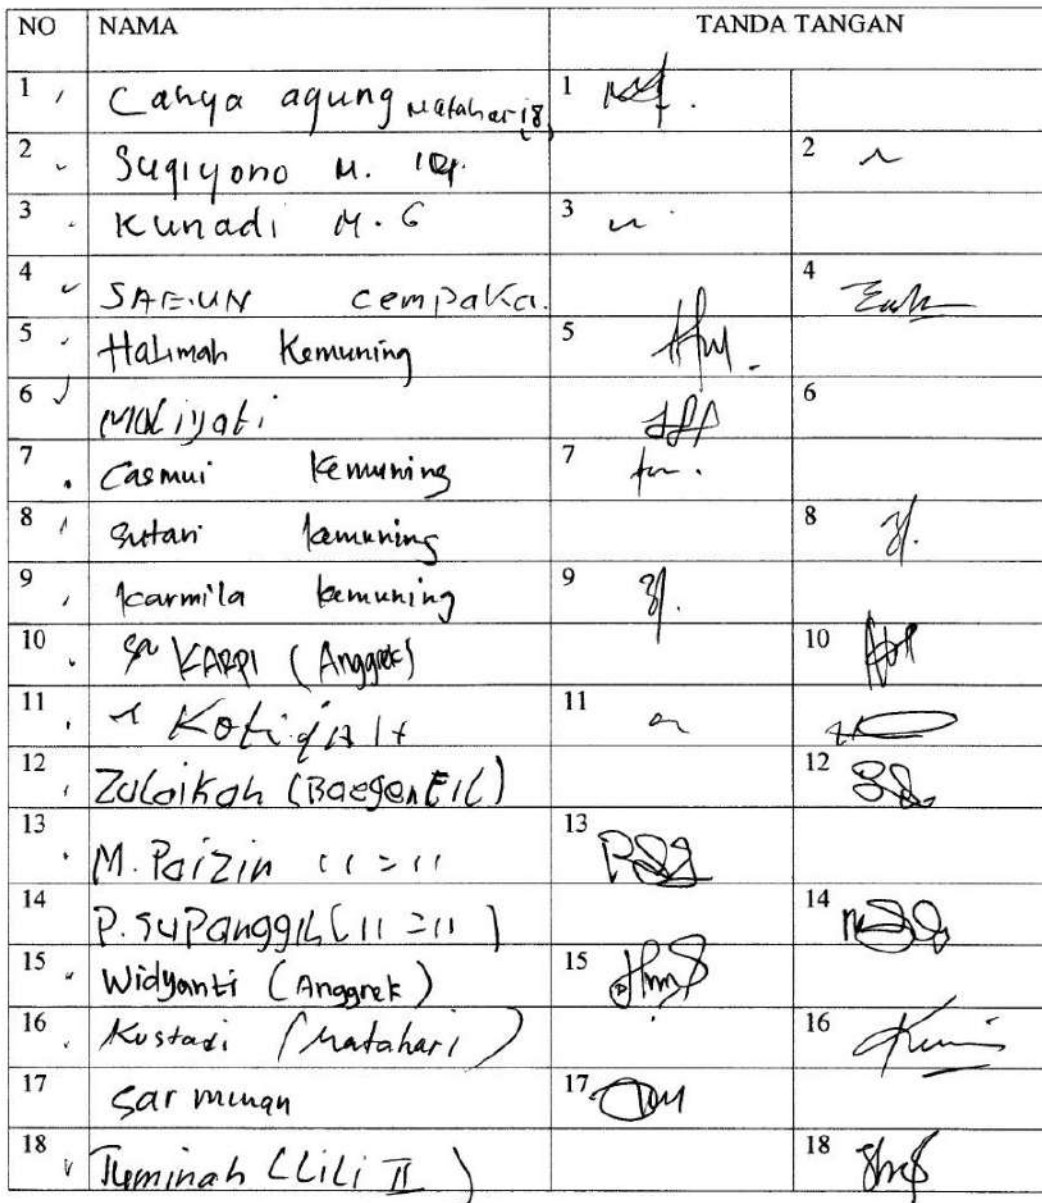 NO NAMA TANDA TANGAN
1 Cahya agung Matahari 8 1
2 Sugiyono M. 2
3 Kunadi M. 6 3
4 SAEUN cempaka. 4
5 Halimah Kemuning 5
6 Muliyati 6
7 Casmui Kemuning 7
8 Sutari kemuning 8
9 karmila kemuning 9
10 KARPI (Anggrek) 10
11 11
12 Zulaikah (Baegenvil) 12
13 M. Paizin 11=11 13
14 P. SuPanggih (11=11) 14
15 Widyanti (Anggrek) 15
16 Kustadi (Matahari) 16
17 Sarmunan 17
18 Tuminah (LiLi II) 18